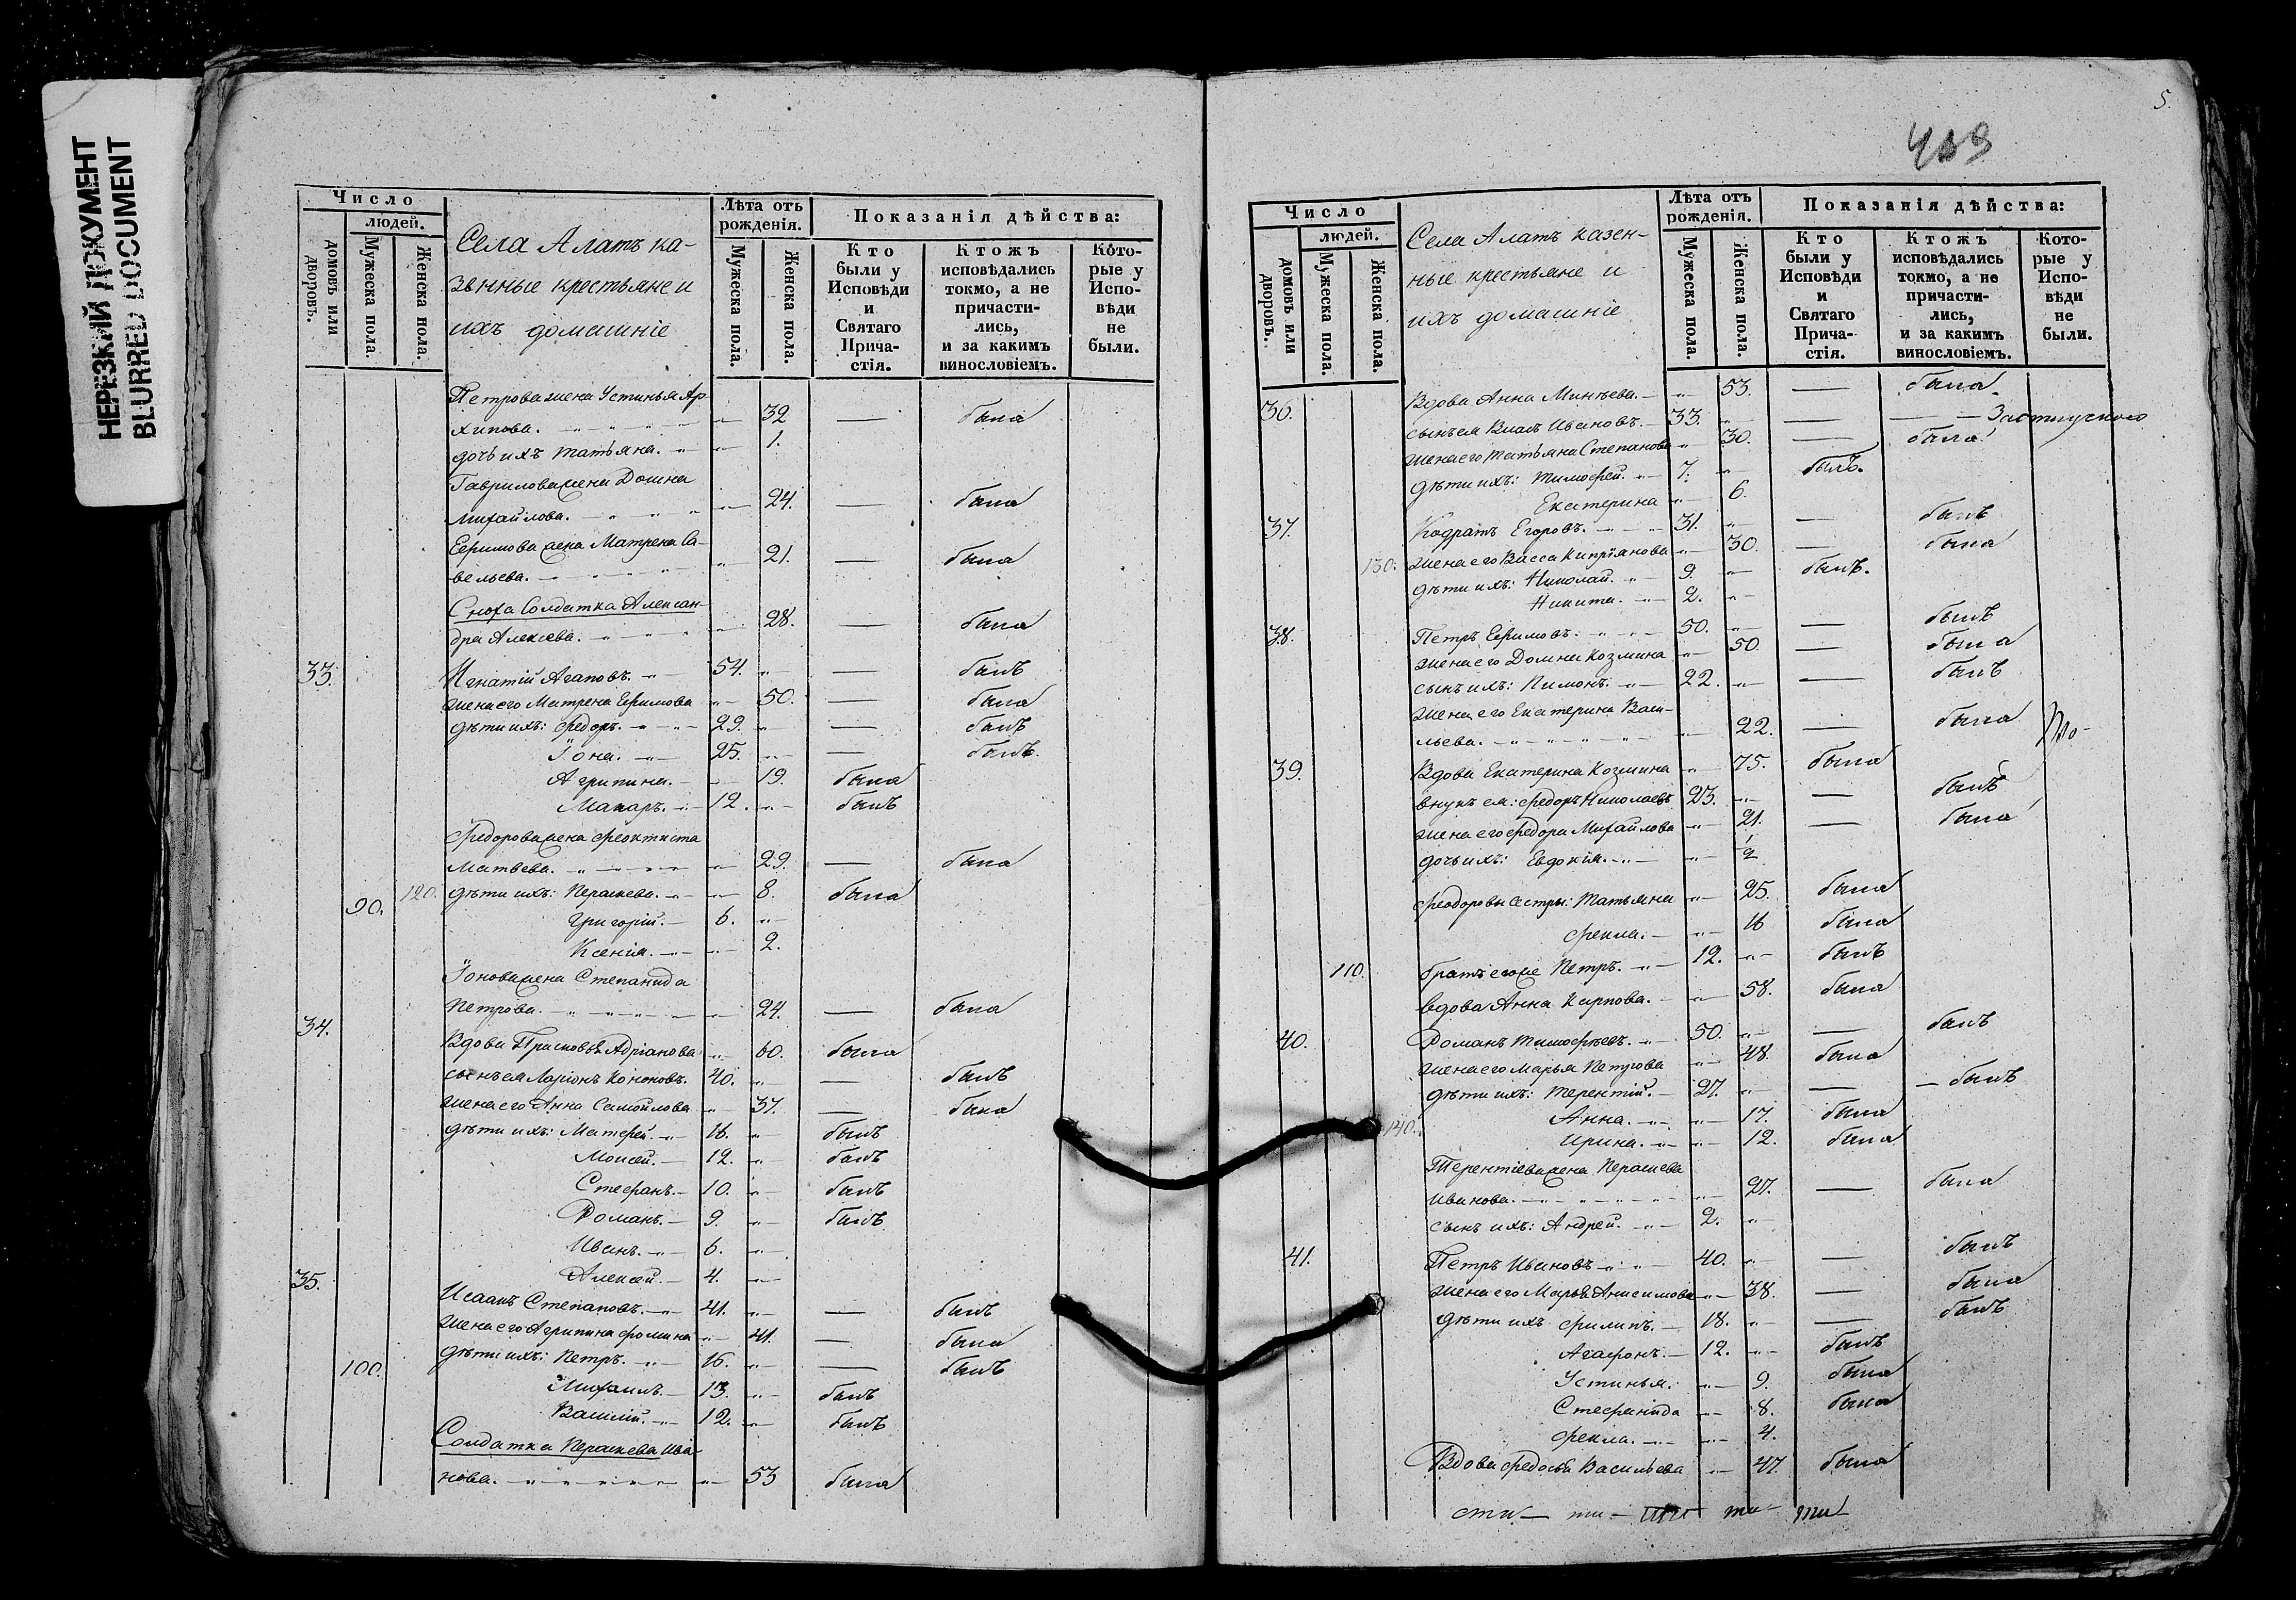 НЕРЕЗКИЙ ДОКУМЕНТ
BLURRED DOCUMENT
Число
людей.
домовъ или дворовъ.
Мужеска пола.
Женска пола.
Села Алатъ ка-
зенные крестьяне и
ихъ домашніе
Лѣта отъ рожденія.
Мужеска пола.
Женска пола.
Показанія дѣйства:
Кто были у Исповѣди и Святаго Прича-стія.
Ктожъ исповѣдались токмо, а не причасти-лись, и за какимъ винословіемъ.
Кото-рые у Испо-вѣди не были.
Петрова жена Устинья Ар-
хипова. 32 — была
дочь ихъ Татьяна. 1.
Гаврилова жена Домна
Михайлова. 24. — была
Ефимова жена Матрена Са-
вельева. 21. — была
Сноха Солдатка Алексан-
дра Алексѣева. 28. — была
33. Игнатій Агаповъ. 54. — былъ
жена его Матрена Ефимова 50. — была
дѣти ихъ: Федоръ. 29. — былъ
Іона. 25. — былъ
Агрипина. 19. была
Макаръ. 12. былъ
Федорова жена Феоктиста
Матвеева. 29. — была
90. 120. дѣти ихъ: Параскева. 8. была
Григорій. 6.
Ксенія. 2.
Іонова жена Степанида
Петрова. 24. — была
34. Вдова Прасковья Адріанова 60. была
сынъ ея Ларіонъ Кононовъ. 40. — былъ
жена его Анна Самойлова 37. — была
дѣти ихъ: Матфей. 16. былъ
Моисей. 12. былъ
Стефанъ. 10. былъ
Романъ. 9. былъ
Иванъ. 6.
Алексѣй. 4.
35. Исаакъ Степановъ. 41. — былъ
жена его Агрипина Фомина 41. — была
100. дѣти ихъ: Петръ. 16. — былъ
Михаилъ. 13. былъ
Василій. 12. былъ
Солдатка Параскева Ива-
нова. 53 была
5.
Число
людей.
домовъ или дворовъ.
Мужеска пола.
Женска пола.
Села Алатъ казен-
ные крестьяне и
ихъ домашніе
Лѣта отъ рожденія.
Мужеска пола.
Женска пола.
Показанія дѣйства:
Кто были у Исповѣди и Святаго Прича-стія.
Ктожъ исповѣдались токмо, а не причасти-лись, и за какимъ винословіемъ.
Кото-рые у Испо-вѣди не были.
36. Вдова Анна Минѣева. 53. — была
сынъ ея Власъ Ивановъ. 33. — —
жена его Татьяна Степанова 30. — была
дѣти ихъ: Тимофей. 7. былъ.
Екатерина 6.
37. Кодратъ Егоровъ. 31. — былъ
130. жена его Васса Кипріанова 30. — была
дѣти ихъ: Николай. 9. былъ.
Никита. 2.
38. Петръ Ефимовъ. 50. — былъ
жена его Домна Козмина 50. — была
сынъ ихъ: Пимонъ. 22. — былъ
жена его Екатерина Васи-
льева. 22. — была
39. Вдова Екатерина Козмина 75. была
внукъ ея: Федоръ Николаевъ 23. — былъ
жена его Федора Михайлова 21. — была
дочь ихъ: Евдокія. 1/2
Феодоровы сестры: Татьяна 25. была
Фекла. 16 была
110. братъ его же Петръ. 12. былъ
вдова Анна Карпова. 58. была
40. Романъ Тимофѣевъ. 50. — былъ
жена его Марья Петрова 48. была
дѣти ихъ: Терентій. 27. — былъ
Анна. 17. была
140. Ирина. 12. была
Терентіева жена Параскева
Иванова. 27. — была
сынъ ихъ: Андрей. 2.
41. Петръ Ивановъ 40. — былъ
жена его Марья Анисимова 38. — была
дѣти ихъ Филипъ. 18. — былъ
Агафонъ. 12. былъ
Устинья. 9. была
Стефанида 8. была
Фекла. 4.
Вдова Федосья Васильева 47. была